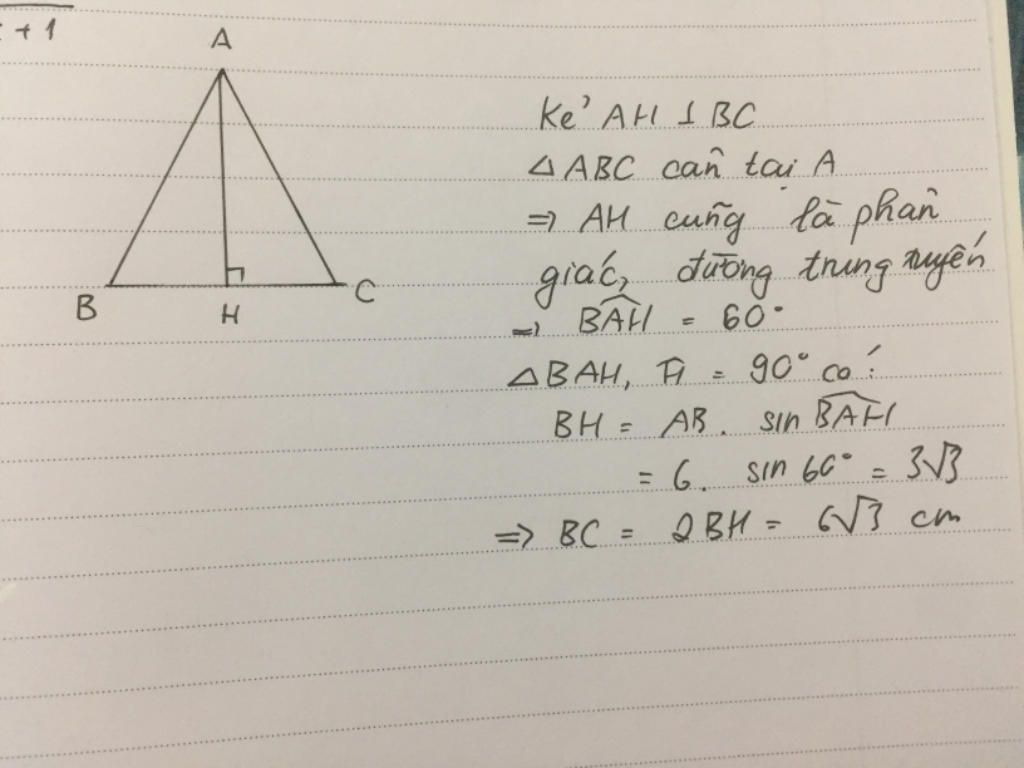 + 1
A
B
H
C
Kẻ AH ⊥ BC
△ABC cân tại A
⇒ AH cũng là phân
giác, đường trung tuyến
⇒ BAH = 60°
△BAH, Ĥ = 90° có:
BH = AB. sin BAH
= 6. sin 60° = 3√3
⇒ BC = 2BH = 6√3 cm